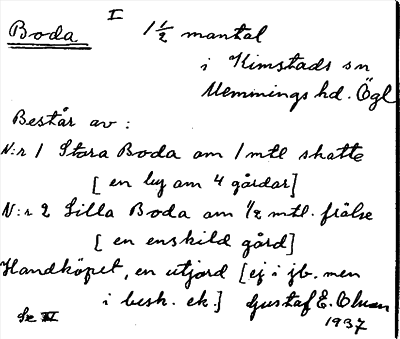 Boda I 1 1/2 mantal
i Kimstads sn
Memmings hd. Ögl
Består av:
N:r 1 Stora Boda om 1 mtl skatte
[en by om 4 gårdar]
N:r 2 Lilla Boda om 1/2 mtl. frälse
[en enskild gård]
Handköpet, en utjord [ej i jb. men
i besk. ek.] Gustaf E. Olsson
Se IV 1937